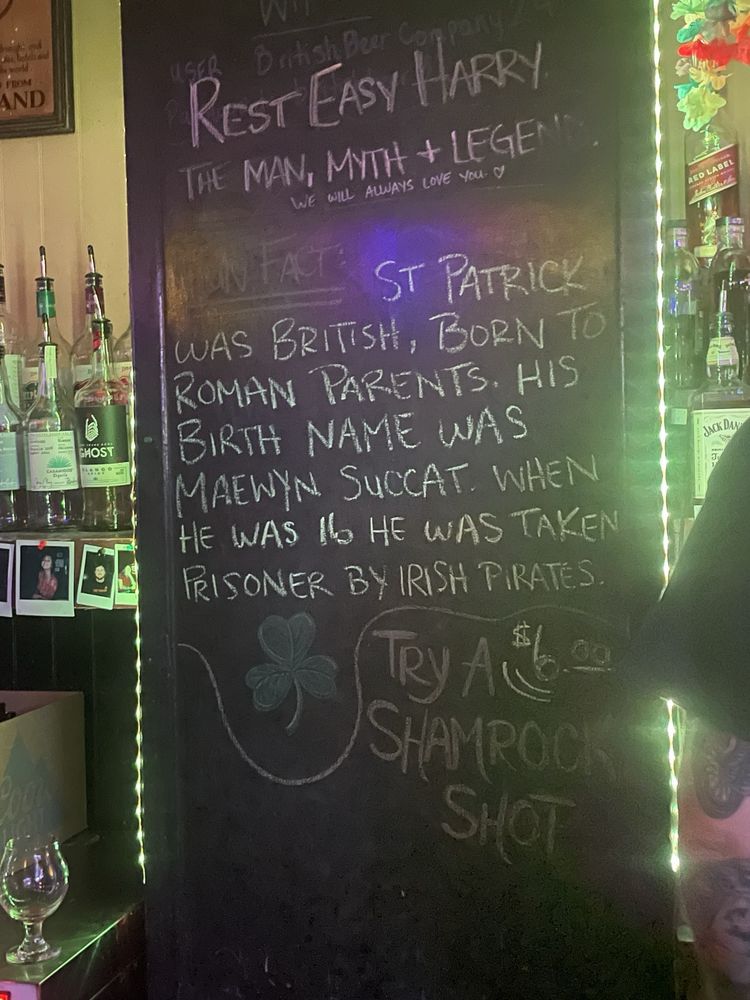 British Beer Company
REST EASY HARRY
THE MAN, MYTH + LEGEND.
WE WILL ALWAYS LOVE YOU. ♡
FUN FACT: ST PATRICK
WAS BRITISH, BORN TO
ROMAN PARENTS. HIS
BIRTH NAME WAS
MAEWYN SUCCAT. WHEN
HE WAS 16 HE WAS TAKEN
PRISONER BY IRISH PIRATES.
TRY A $6.00
SHAMROCK
SHOT
FROM
AND
GHOST
RED LABEL
JACK DANI